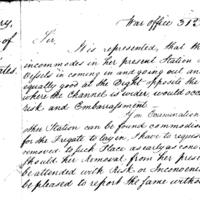 ry,
of
ales
War Office 312
Sir,
It is represented, that th
incommodes in her present Station
Vessels in coming in and going out an
equally good at the Bight opposite the
where the Channel is wider, would occa
risk and Embarrassment.
If on Examination
other Station can be found commodiou
for the Frigate to lay in, I have to reques
removed to such Place as early as conv
Should her Removal from her prese
be attended with Risk or Inconvenie
be pleased to report the same witho